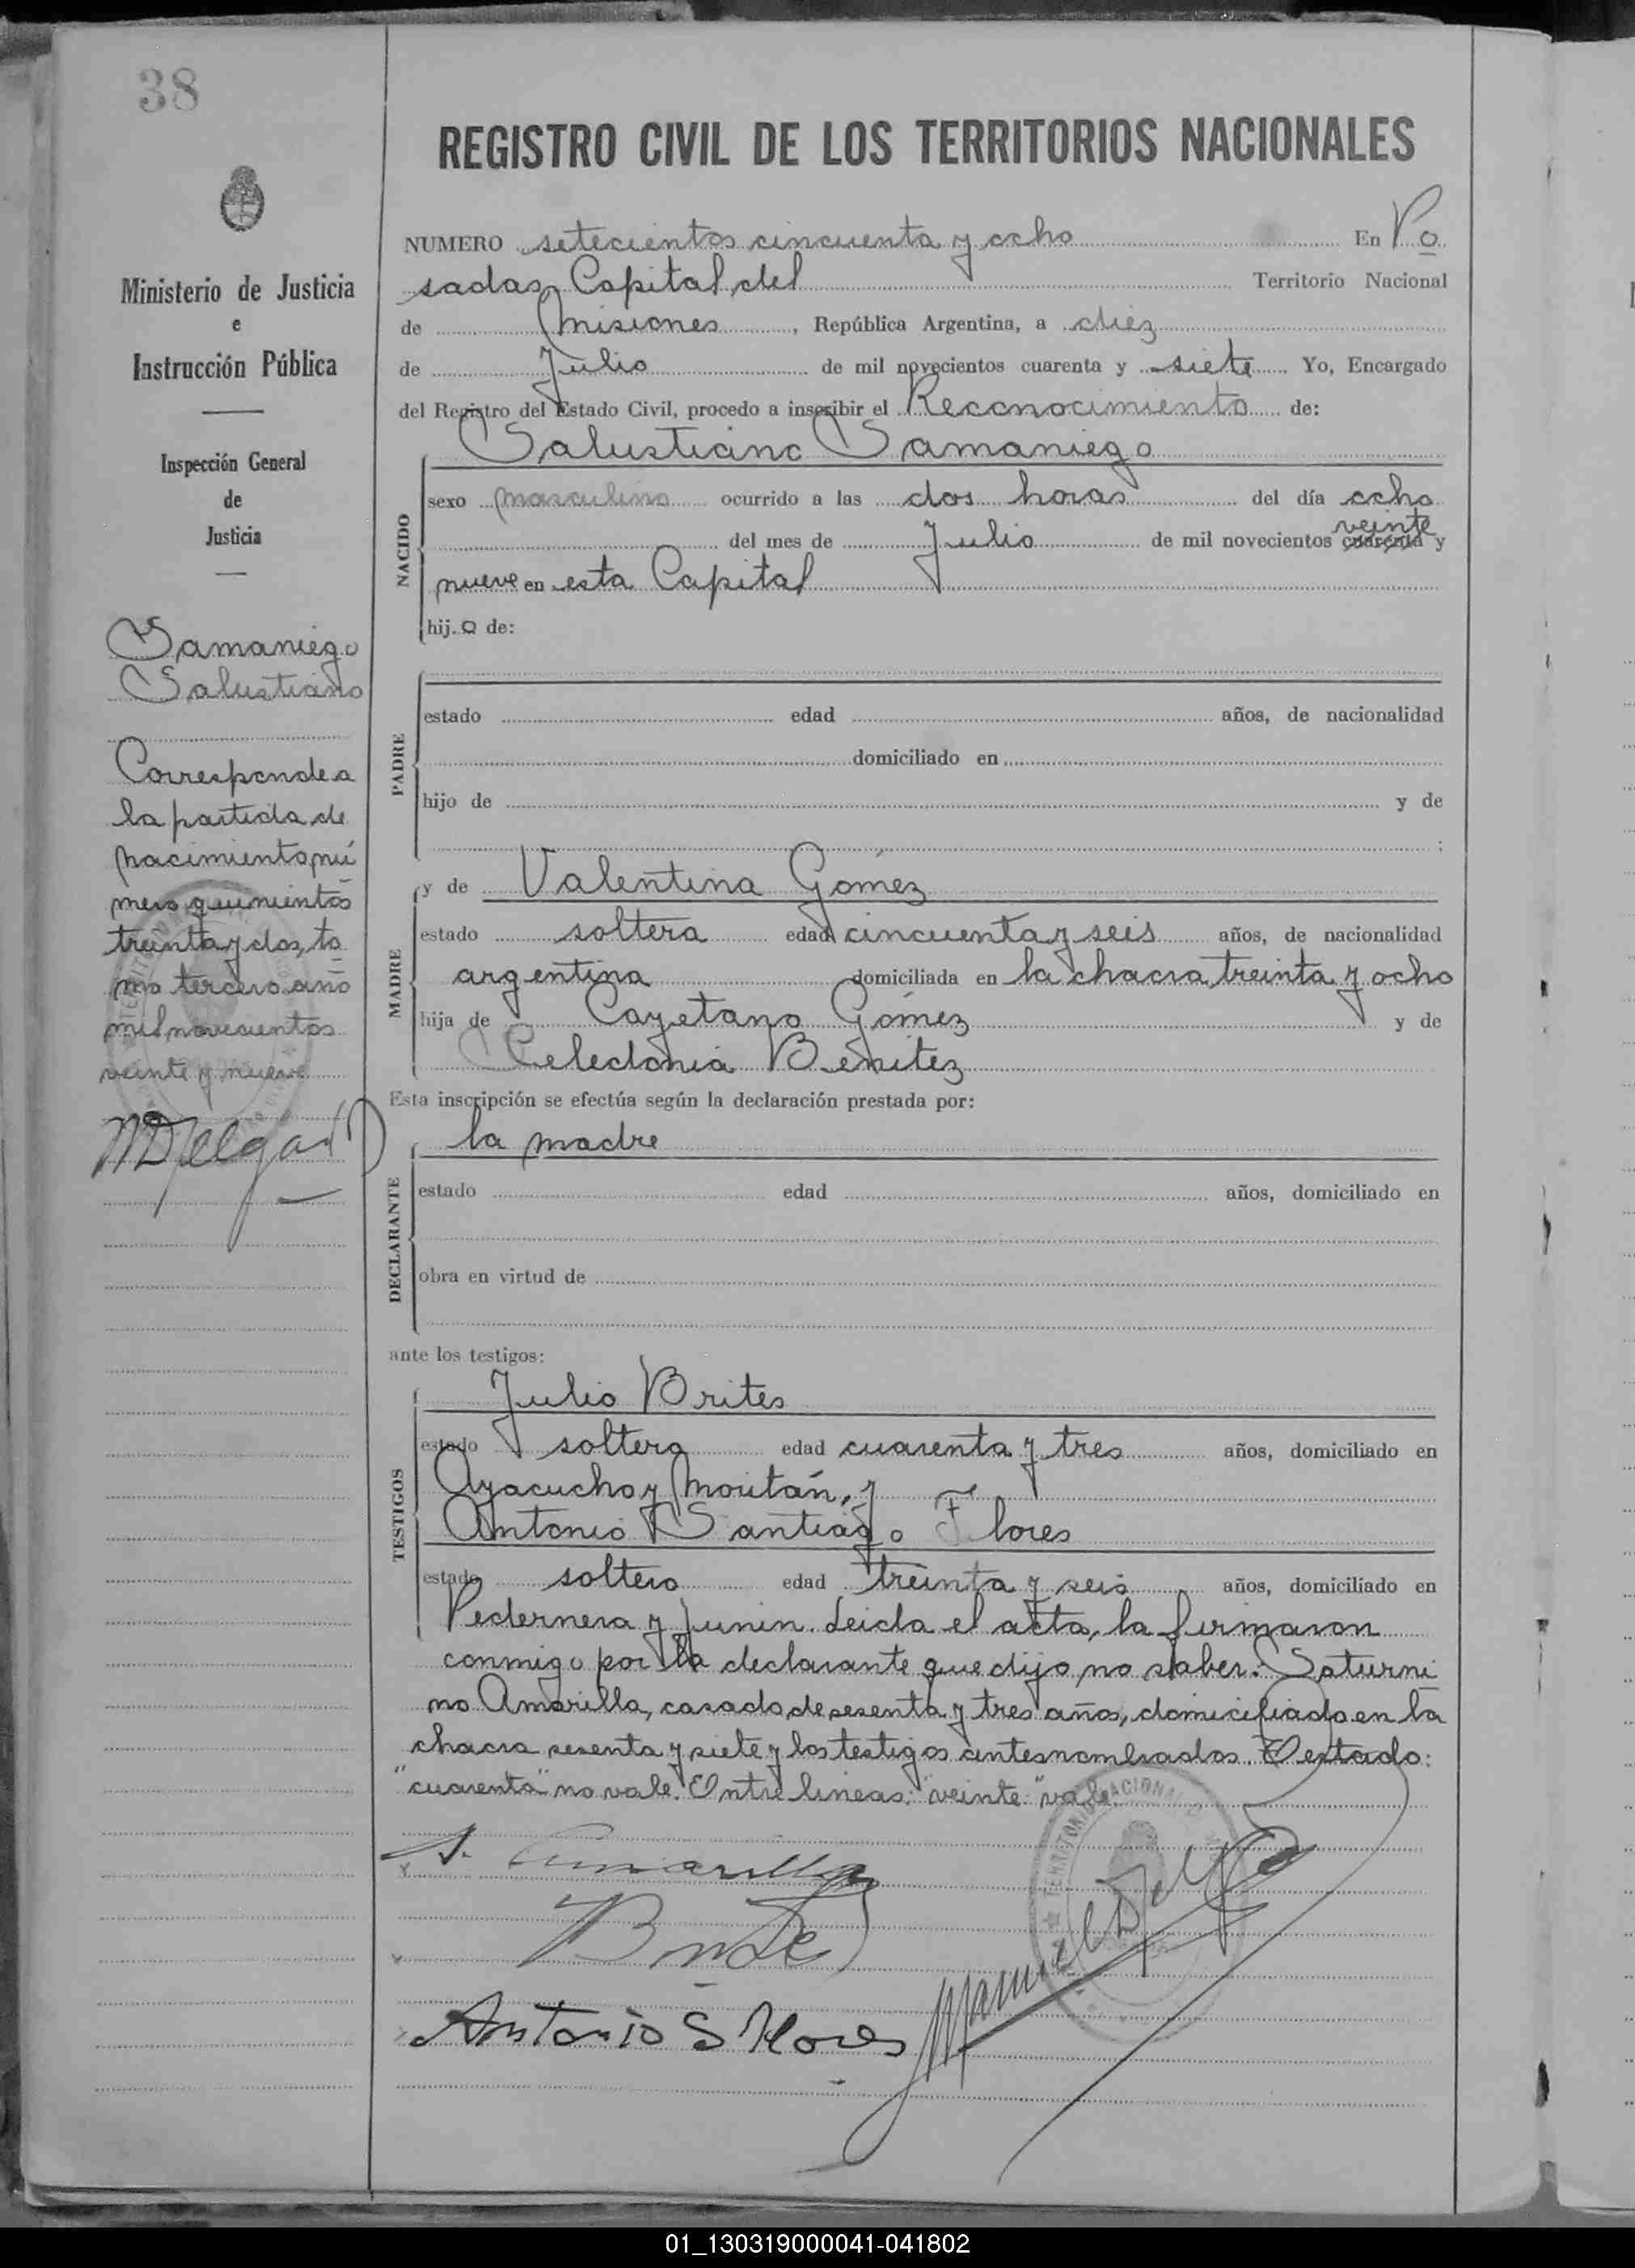 38
REGISTRO CIVIL DE LOS TERRITORIOS NACIONALES
Ministerio de Justicia
e
Instrucción Pública
Inspección General
de
Justicia
Samaniego
Salustiano
Corresponde a
la partida de
nacimiento nú
mero quinientos
treinta y dos, to
mo tercero año
mil novecientos
veinte y nueve
MDelgado
NUMERO setecientos cincuenta y ocho En Po
sadas Capital del Territorio Nacional
de Misiones, República Argentina, a diez
de Julio de mil novecientos cuarenta y siete Yo, Encargado
del Registro del Estado Civil, procedo a inscribir el Reconocimiento de:
Salustiano Samaniego
NACIDO
sexo masculino ocurrido a las dos horas del día ocho
veinte
del mes de Julio de mil novecientos cuarenta y
nueve en esta Capital
hijo de:
PADRE
estado edad años, de nacionalidad
domiciliado en
hijo de y de
;
MADRE
y de Valentina Gómez
estado soltera edad cincuenta y seis años, de nacionalidad
argentina domiciliada en la chacra treinta y ocho
hija de Cayetano Gómez y de
Celedonia Benitez
Esta inscripción se efectúa según la declaración prestada por:
DECLARANTE
la madre
estado edad años, domiciliado en
obra en virtud de
ante los testigos:
TESTIGOS
Julio Brites
estado soltero edad cuarenta y tres años, domiciliado en
Ayacucho y Moritán, y
Antonio Santiago Flores
estado soltero edad treinta y seis años, domiciliado en
Pedernera y Junin. Leida el acta, la firmaron
conmigo por la declarante que dijo no saber: Saturni
no Amarilla, casado de sesenta y tres años, domiciliado en la
chacra sesenta y siete y los testigos antes nombrados. Testado:
"cuarenta" no vale. Entre lineas: "veinte" vale.
S. Amarilla
Brites
Antonio S Flores
Manuel Delgado
01_130319000041-041802